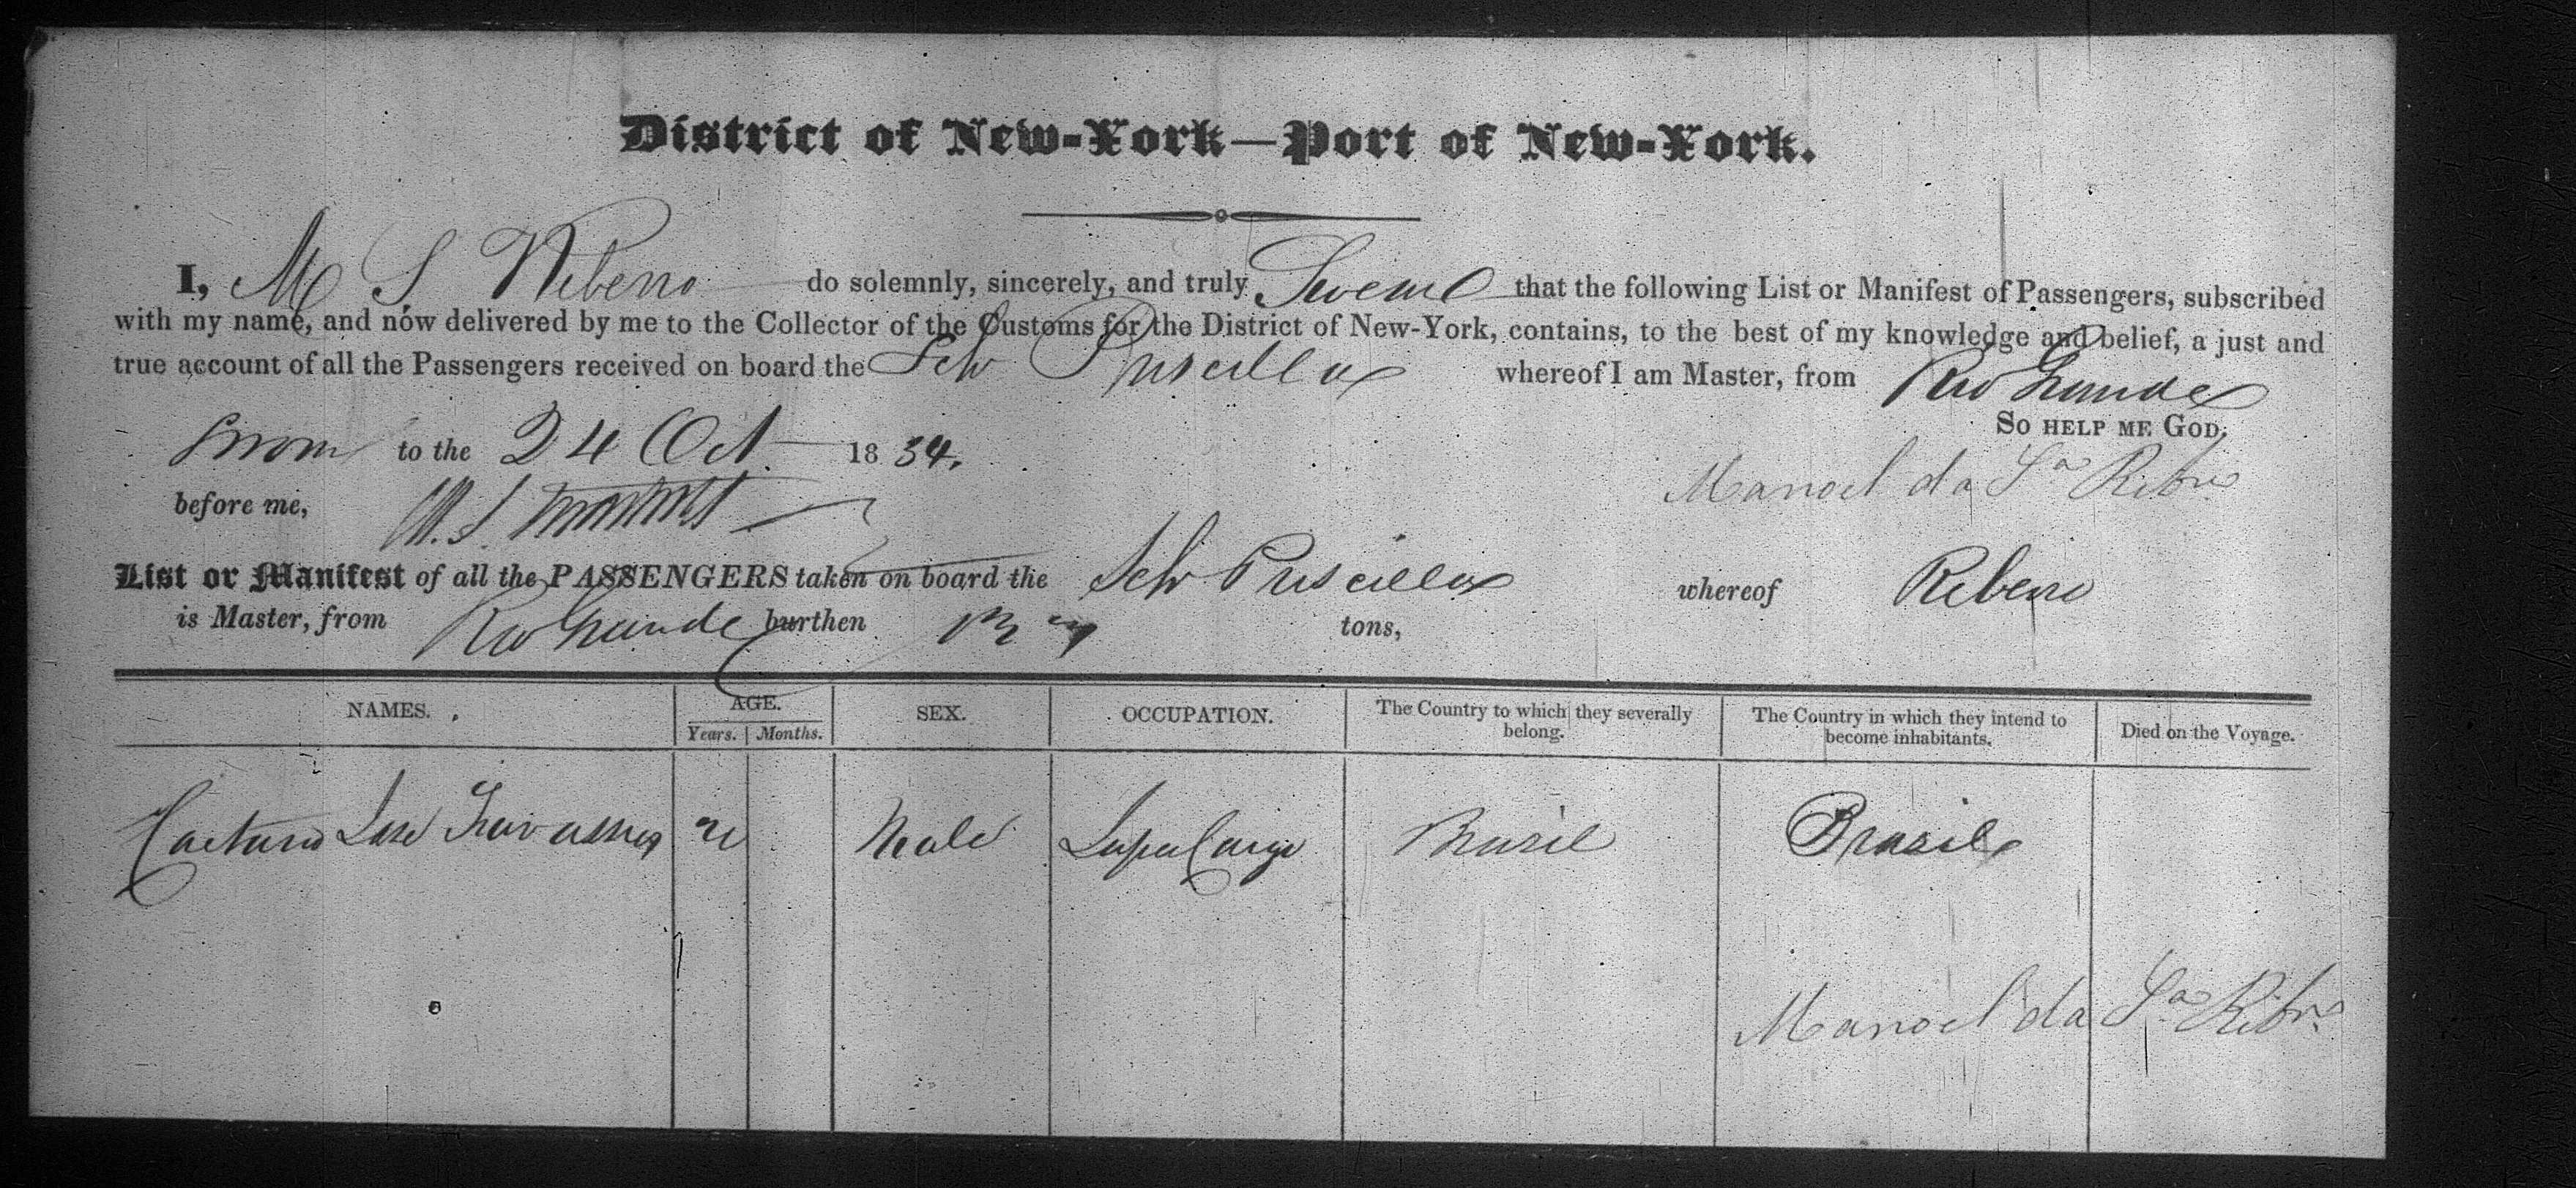 District of New-York—Port of New-York.
I, M S Ribero do solemnly, sincerely, and truly Swear that the following List or Manifest of Passengers, subscribed
with my name, and now delivered by me to the Collector of the Customs for the District of New-York, contains, to the best of my knowledge and belief, a just and
true account of all the Passengers received on board the Sch Priscilla whereof I am Master, from Rio Grande
So help me God.
Sworn to the 24 Oct 1834.
Manoel da Sa Ribro
before me,
List or Manifest of all the PASSENGERS taken on board the Sch Priscilla whereof Ribero
is Master, from Rio Grande burthen tons,
NAMES. AGE. SEX. OCCUPATION. The Country to which they severally belong. The Country in which they intend to become inhabitants. Died on the Voyage.
Years. Months.
Caetano Jose Travassos Male Supercargo Brazil Brazil
Manoel da Sa Ribro